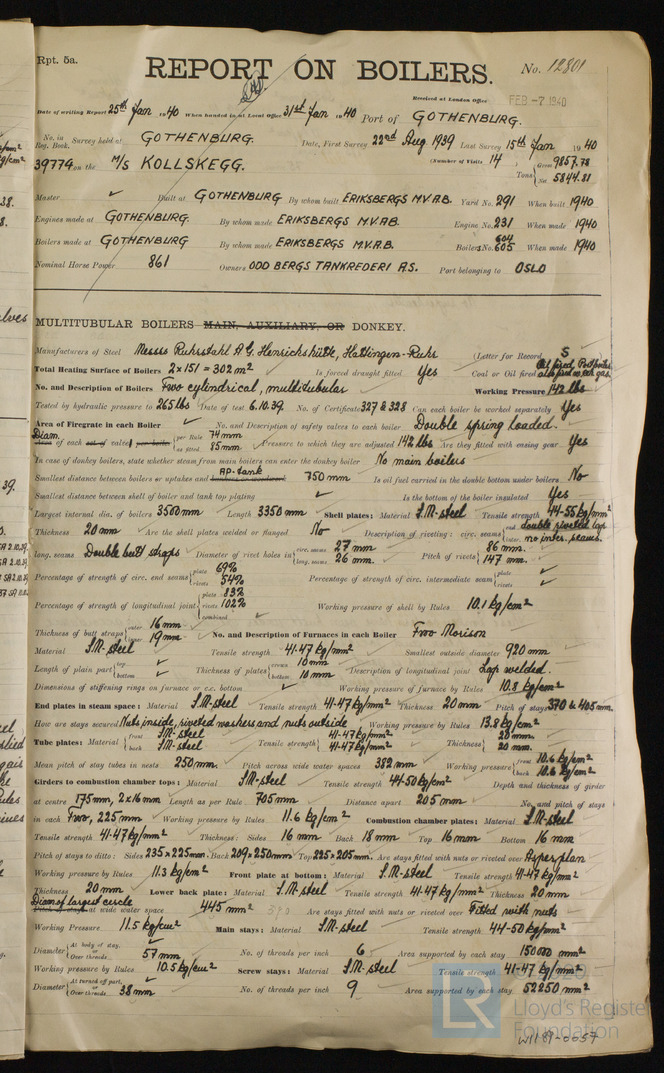 Rpt. 5a.
REPORT ON BOILERS.
No. 12801
Received at London Office FEB -7 1940
Date of writing Report 25th Jan 1940 When handed in at Local Office 31st Jan 1940 Port of GOTHENBURG.
No. in Reg. Book. Survey held at GOTHENBURG. Date, First Survey 22nd Aug 1939 Last Survey 15th Jan 1940
39774 on the M/S KOLLSKEGG. (Number of Visits 14) Tons Gross 9857.78 Net 5844.81
Master ✓ Built at GOTHENBURG By whom built ERIKSBERGS M.V.A.B. Yard No. 291 When built 1940
Engines made at GOTHENBURG By whom made ERIKSBERGS M.V.A.B. Engine No. 231 When made 1940
Boilers made at GOTHENBURG By whom made ERIKSBERGS M.V.A.B. Boilers No. 604 605 When made 1940
Nominal Horse Power 861 Owners ODD BERGS TANKREDERI A.S. Port belonging to OSLO
MULTITUBULAR BOILERS MAIN, AUXILIARY, OR DONKEY.
Manufacturers of Steel Messrs Ruhrstahl A G. Henrichshütte, Hattingen-Ruhr (Letter for Record S
Total Heating Surface of Boilers 2×151 = 302 m² Is forced draught fitted Yes Coal or Oil fired Oil fired,
No. and Description of Boilers Two cylindrical, multitubular Working Pressure 142 lbs
Tested by hydraulic pressure to 265 lbs Date of test 6.10.39. No. of Certificate 327 & 328 Can each boiler be worked separately Yes
Area of Firegrate in each Boiler ✓ No. and Description of safety valves to each boiler Double spring loaded.
Diam. of each set of valves per boiler per Rule 74 mm as fitted 85 mm Pressure to which they are adjusted 142 lbs Are they fitted with easing gear Yes
In case of donkey boilers, state whether steam from main boilers can enter the donkey boiler No main boilers
Smallest distance between boilers or uptakes and ap. tank 750 mm Is oil fuel carried in the double bottom under boilers No
Smallest distance between shell of boiler and tank top plating ✓ Is the bottom of the boiler insulated Yes
Largest internal dia. of boilers 3500 mm Length 3350 mm Shell plates: Material S.M-steel Tensile strength 44-55 kg/mm²
Thickness 20 mm Are the shell plates welded or flanged No Description of riveting: circ. seams end double riveted lap inter. no inter. seams.
long. seams Double butt straps Diameter of rivet holes in circ. seams 27 mm long. seams 26 mm Pitch of rivets 86 mm. 147 mm.
Percentage of strength of circ. end seams plate 69% rivets 54% Percentage of strength of circ. intermediate seam plate ✓ rivets ✓
Percentage of strength of longitudinal joint plate 83% rivets 102% combined ✓ Working pressure of shell by Rules 10.1 kg/cm²
Thickness of butt straps outer 16 mm inner 19 mm No. and Description of Furnaces in each Boiler Two Morison
Material S.M-steel Tensile strength 41-47 kg/mm² Smallest outside diameter 920 mm
Length of plain part top ✓ bottom ✓ Thickness of plates crown 10 mm bottom 10 mm Description of longitudinal joint Lap welded.
Dimensions of stiffening rings on furnace or c.c. bottom ✓ Working pressure of furnace by Rules 10.8 kg/cm²
End plates in steam space: Material S.M-steel Tensile strength 41-47 kg/mm² Thickness 20 mm Pitch of stays 370 & 405 mm.
How are stays secured Nuts inside, riveted washers and nuts outside Working pressure by Rules 13.8 kg/cm²
Tube plates: Material front S.M-steel back S.M-steel Tensile strength 41-47 kg/mm² 41-47 kg/mm² Thickness 20 mm. 20 mm.
Mean pitch of stay tubes in nests 250 mm. Pitch across wide water spaces 382 mm Working pressure front 10.6 kg/cm² back 10.6 kg/cm²
Girders to combustion chamber tops: Material S.M-steel Tensile strength 44-50 kg/mm² Depth and thickness of girder
at centre 175 mm, 2×16 mm Length as per Rule 705 mm Distance apart 205 mm No. and pitch of stays
in each Two, 225 mm Working pressure by Rules 11.6 kg/cm² Combustion chamber plates: Material S.M-steel
Tensile strength 41-47 kg/mm² Thickness: Sides 16 mm Back 18 mm Top 16 mm Bottom 16 mm
Pitch of stays to ditto: Sides 235×225 mm. Back 209×250 mm Top 225×205 mm. Are stays fitted with nuts or riveted over As per plan
Working pressure by Rules 11.3 kg/cm² Front plate at bottom: Material S.M-steel Tensile strength 41-47 kg/mm²
Thickness 20 mm Lower back plate: Material S.M-steel Tensile strength 41-47 kg/mm² Thickness 20 mm
Diam of largest circle at wide water space 445 mm² Are stays fitted with nuts or riveted over Fitted with nuts
Working Pressure 11.5 kg/cm² Main stays: Material S.M-steel Tensile strength 44-50 kg/mm²
Diameter At body of stay, or Over threads 57 mm No. of threads per inch 6 Area supported by each stay 150000 mm²
Working pressure by Rules 10.5 kg/cm² Screw stays: Material S.M-steel Tensile strength 41-47 kg/mm²
Diameter At turned off part, or Over threads 38 mm No. of threads per inch 9 Area supported by each stay 52250 mm²
LR Lloyd's Register Foundation
W1189-0057